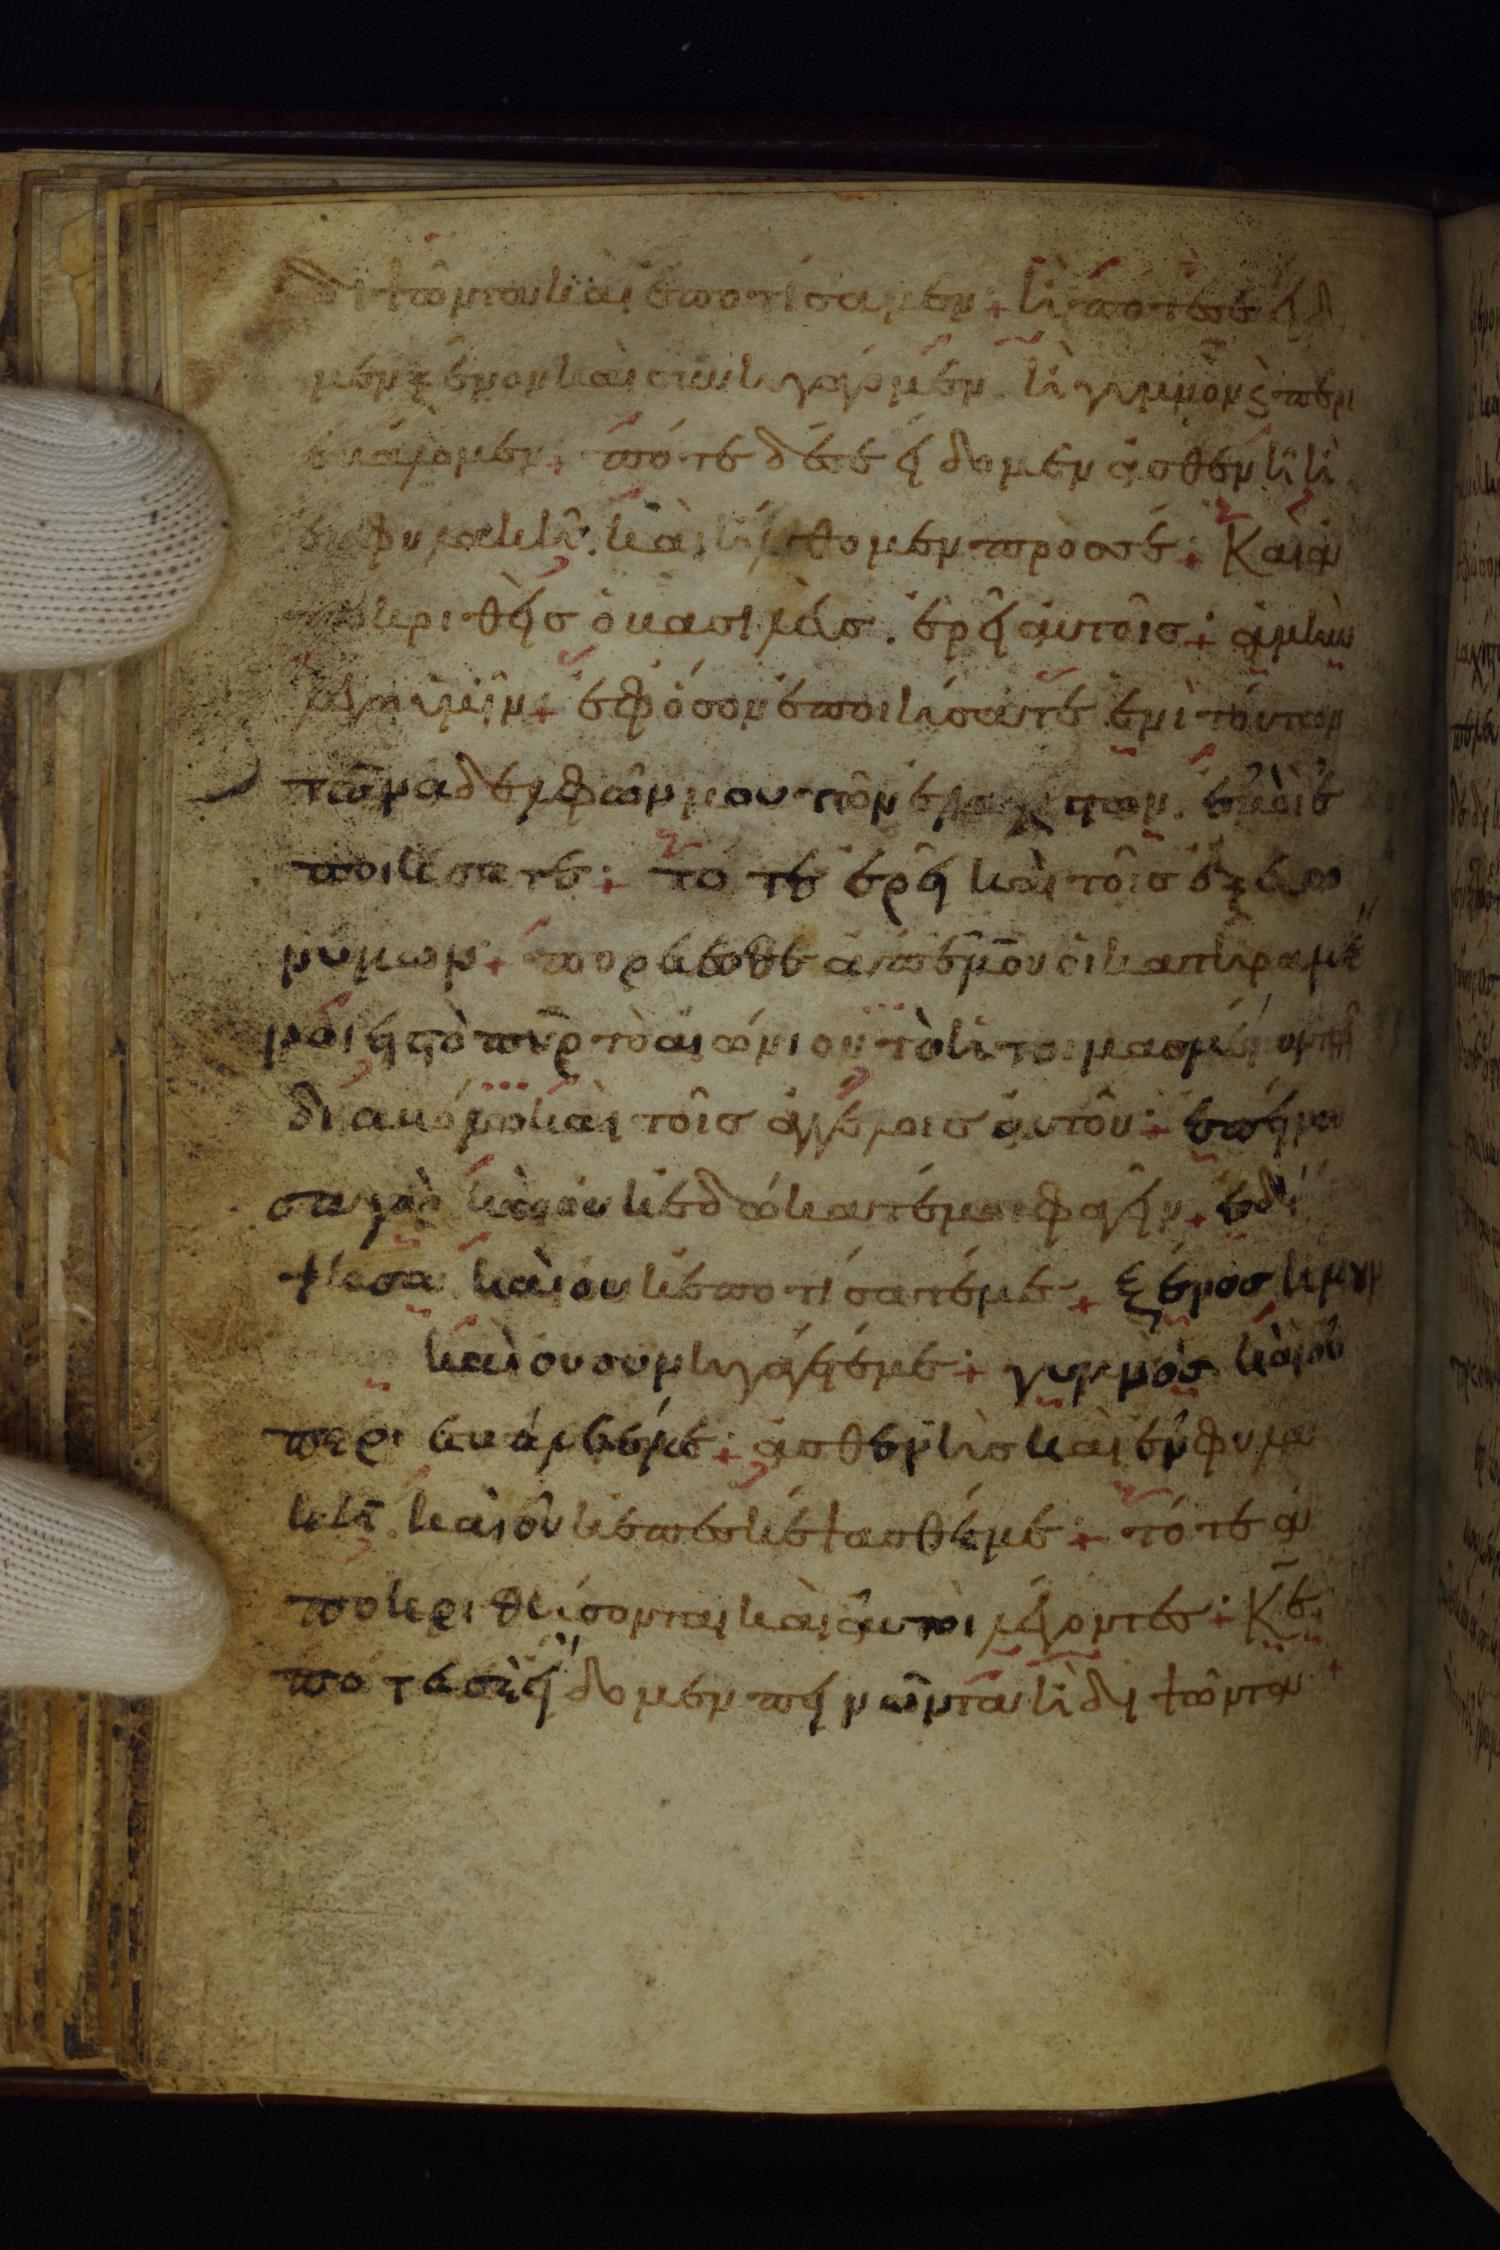 διψῶντα καὶ ἐποτίσαμεν + ἢ πότέ σε ἤδ
μεν ξένον καὶ συνηγάγομεν. ἢ γυμνὸν ϛ περι
εβάλομεν + πότε δέ σε ἤδομεν ἀσθενῆ ἢ
ἐν φυλακῆ. καὶ ἤλθομεν προσσέ + Καὶ ἀ
ποκριθεὶς ὁ βασιλεύς. ἐρεῖ αὐτοῖς + ἀμὴν
λέγω ὑμῖν + ἐφόσον ἐποιήσατε ἐνὶ τούτων
τῶν ἀδελφῶν μου τῶν ἐλαχίστων. ἐμοὶ ἐ
ποιήσατε + τότε ἐρεῖ καὶ τοῖς ἐξ εὐω
νύμων + πορεύεσθε ἀπ ἐμοῦ οἱ κατηραμέ
νοι εἰς τὸ πῦρ τὸ αἰώνιον τὸ ἡτοιμασμένον τῶ
διαβόλω καὶ τοῖς ἀγγέλοις αὐτοῦ + ἐπείνα
σα γὰρ καὶ οὐκ ἐδώκατέ μοι φαγεῖν + ἐδί
ψησα καὶ οὐκ ἐποτίσατέ με + ξένος ἤμην
καὶ οὐ συνηγάγετέ με + γυμνὸς καὶ οὐ
περιεβάλετέ με + ἀσθενὴς καὶ ἐν φυλα
κῆ. καὶ οὐκ ἐπεσκέψασθέ με + τότε ἀ
ποκριθήσονται καὶ αὐτοὶ λέγοντες + Κ̄ε̄
πότέ σε ἤδομεν πεινῶντα ἢ διψῶντα +